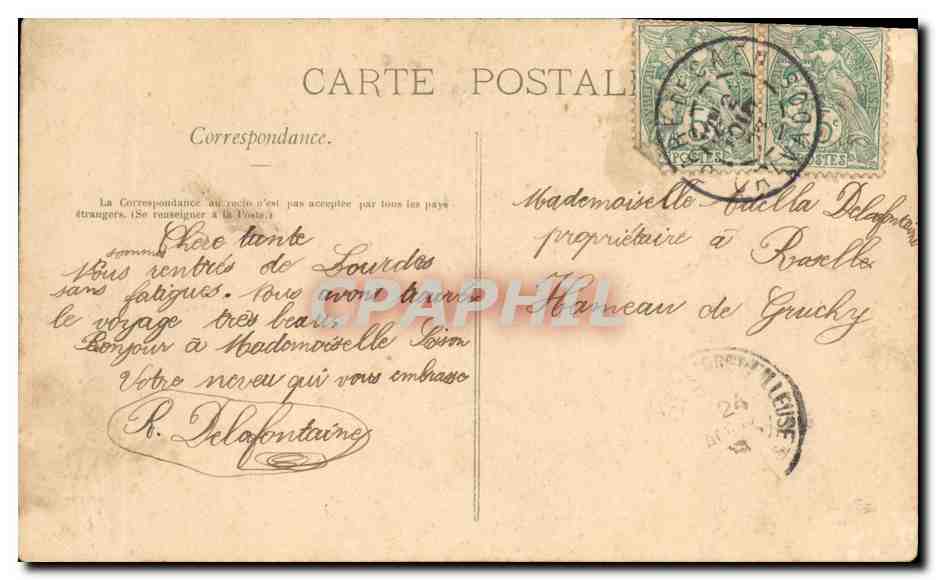 CARTE POSTAL
Correspondance.
La Correspondance au recto n'est pas acceptée par tous les pays
étrangers. (Se renseigner à la Poste.)
Chère tante
Nous sommes rentrés de Lourdes
sans fatigues. Nous avons trouvé
le voyage très beau.
Bonjour à Mademoiselle Loison
Votre neveu qui vous embrasse
R. Delafontaine
Mademoiselle Adella Delafontaine
propriétaire à Roselle
Hameau de Gruchy
POSTES
5c
POSTES
GARE DE CAEN
CALVADOS
24
CPAPHIL